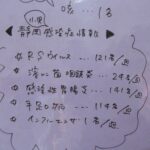 咳… 1名
小児
静岡感染症情報
☆ RSウィルス… 121名/週
☆ 溶レン菌咽頭炎… 24名/週
☆ 感染性胃腸炎… 141名/週
☆ 手足口病… 114名/週
☆ インフルエンザ 1名/週